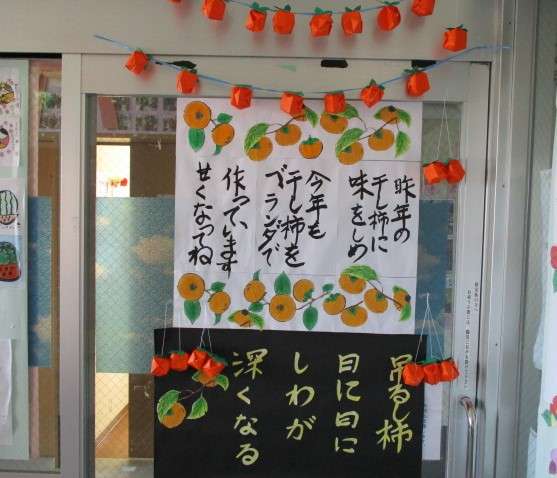 昨年の
干し柿に
味をしめ
今年も
干し柿を
ベランダで
作っています
甘くなってね
吊るし柿
日に日に
しわが
深くなる